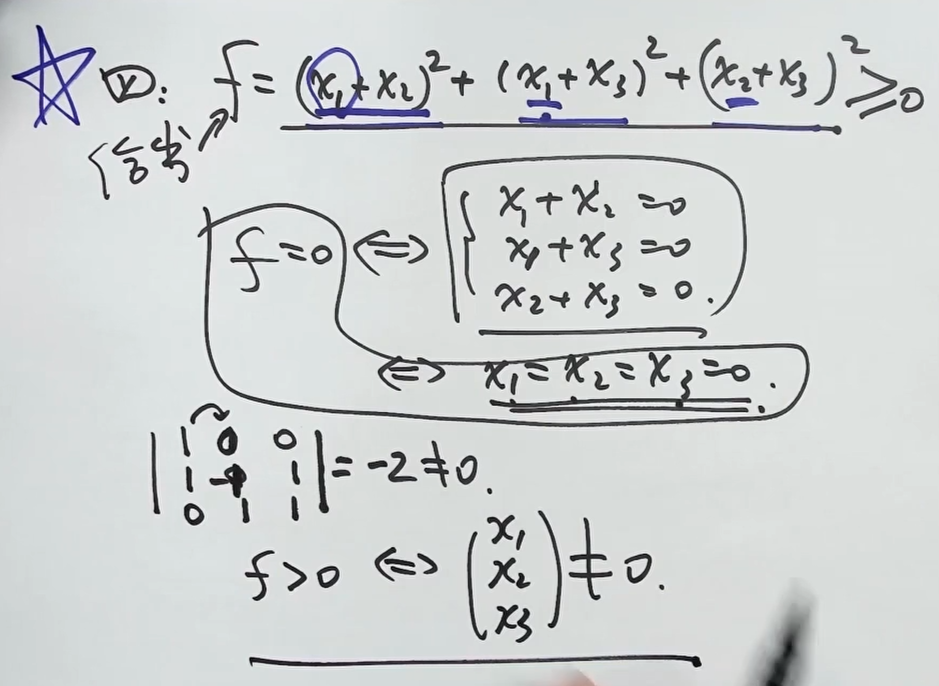 f = (x₁+x₂)² + (x₁+x₃)² + (x₂+x₃)² ≥ 0
f=0 ⇔ { x₁+x₂=0
x₁+x₃=0
x₂+x₃=0.
⇔ x₁=x₂=x₃=0.
| 1 0 0
1 -1 1 | = -2≠0.
0 1 1
f>0 ⇔ ( x₁
x₂ ) ≠0.
x₃